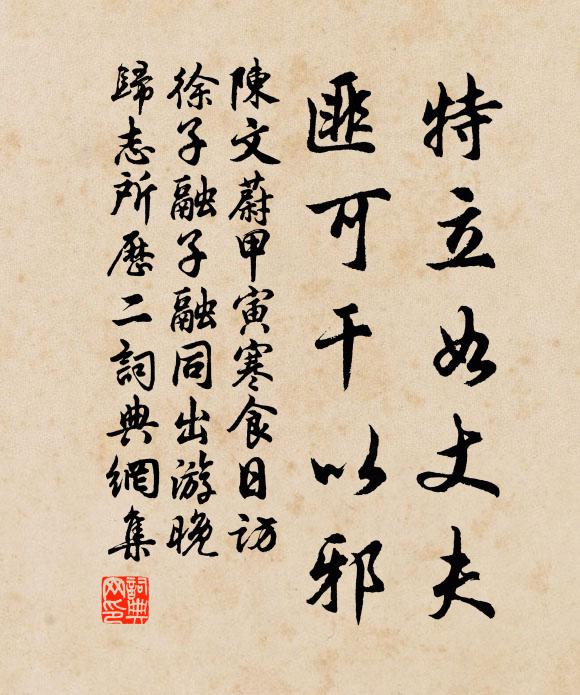 特立如丈夫
匪可干以邪
陳文蔚甲寅寒食日訪
徐子融子融同出游晚
歸志所歷二詞典網集
詞典網印